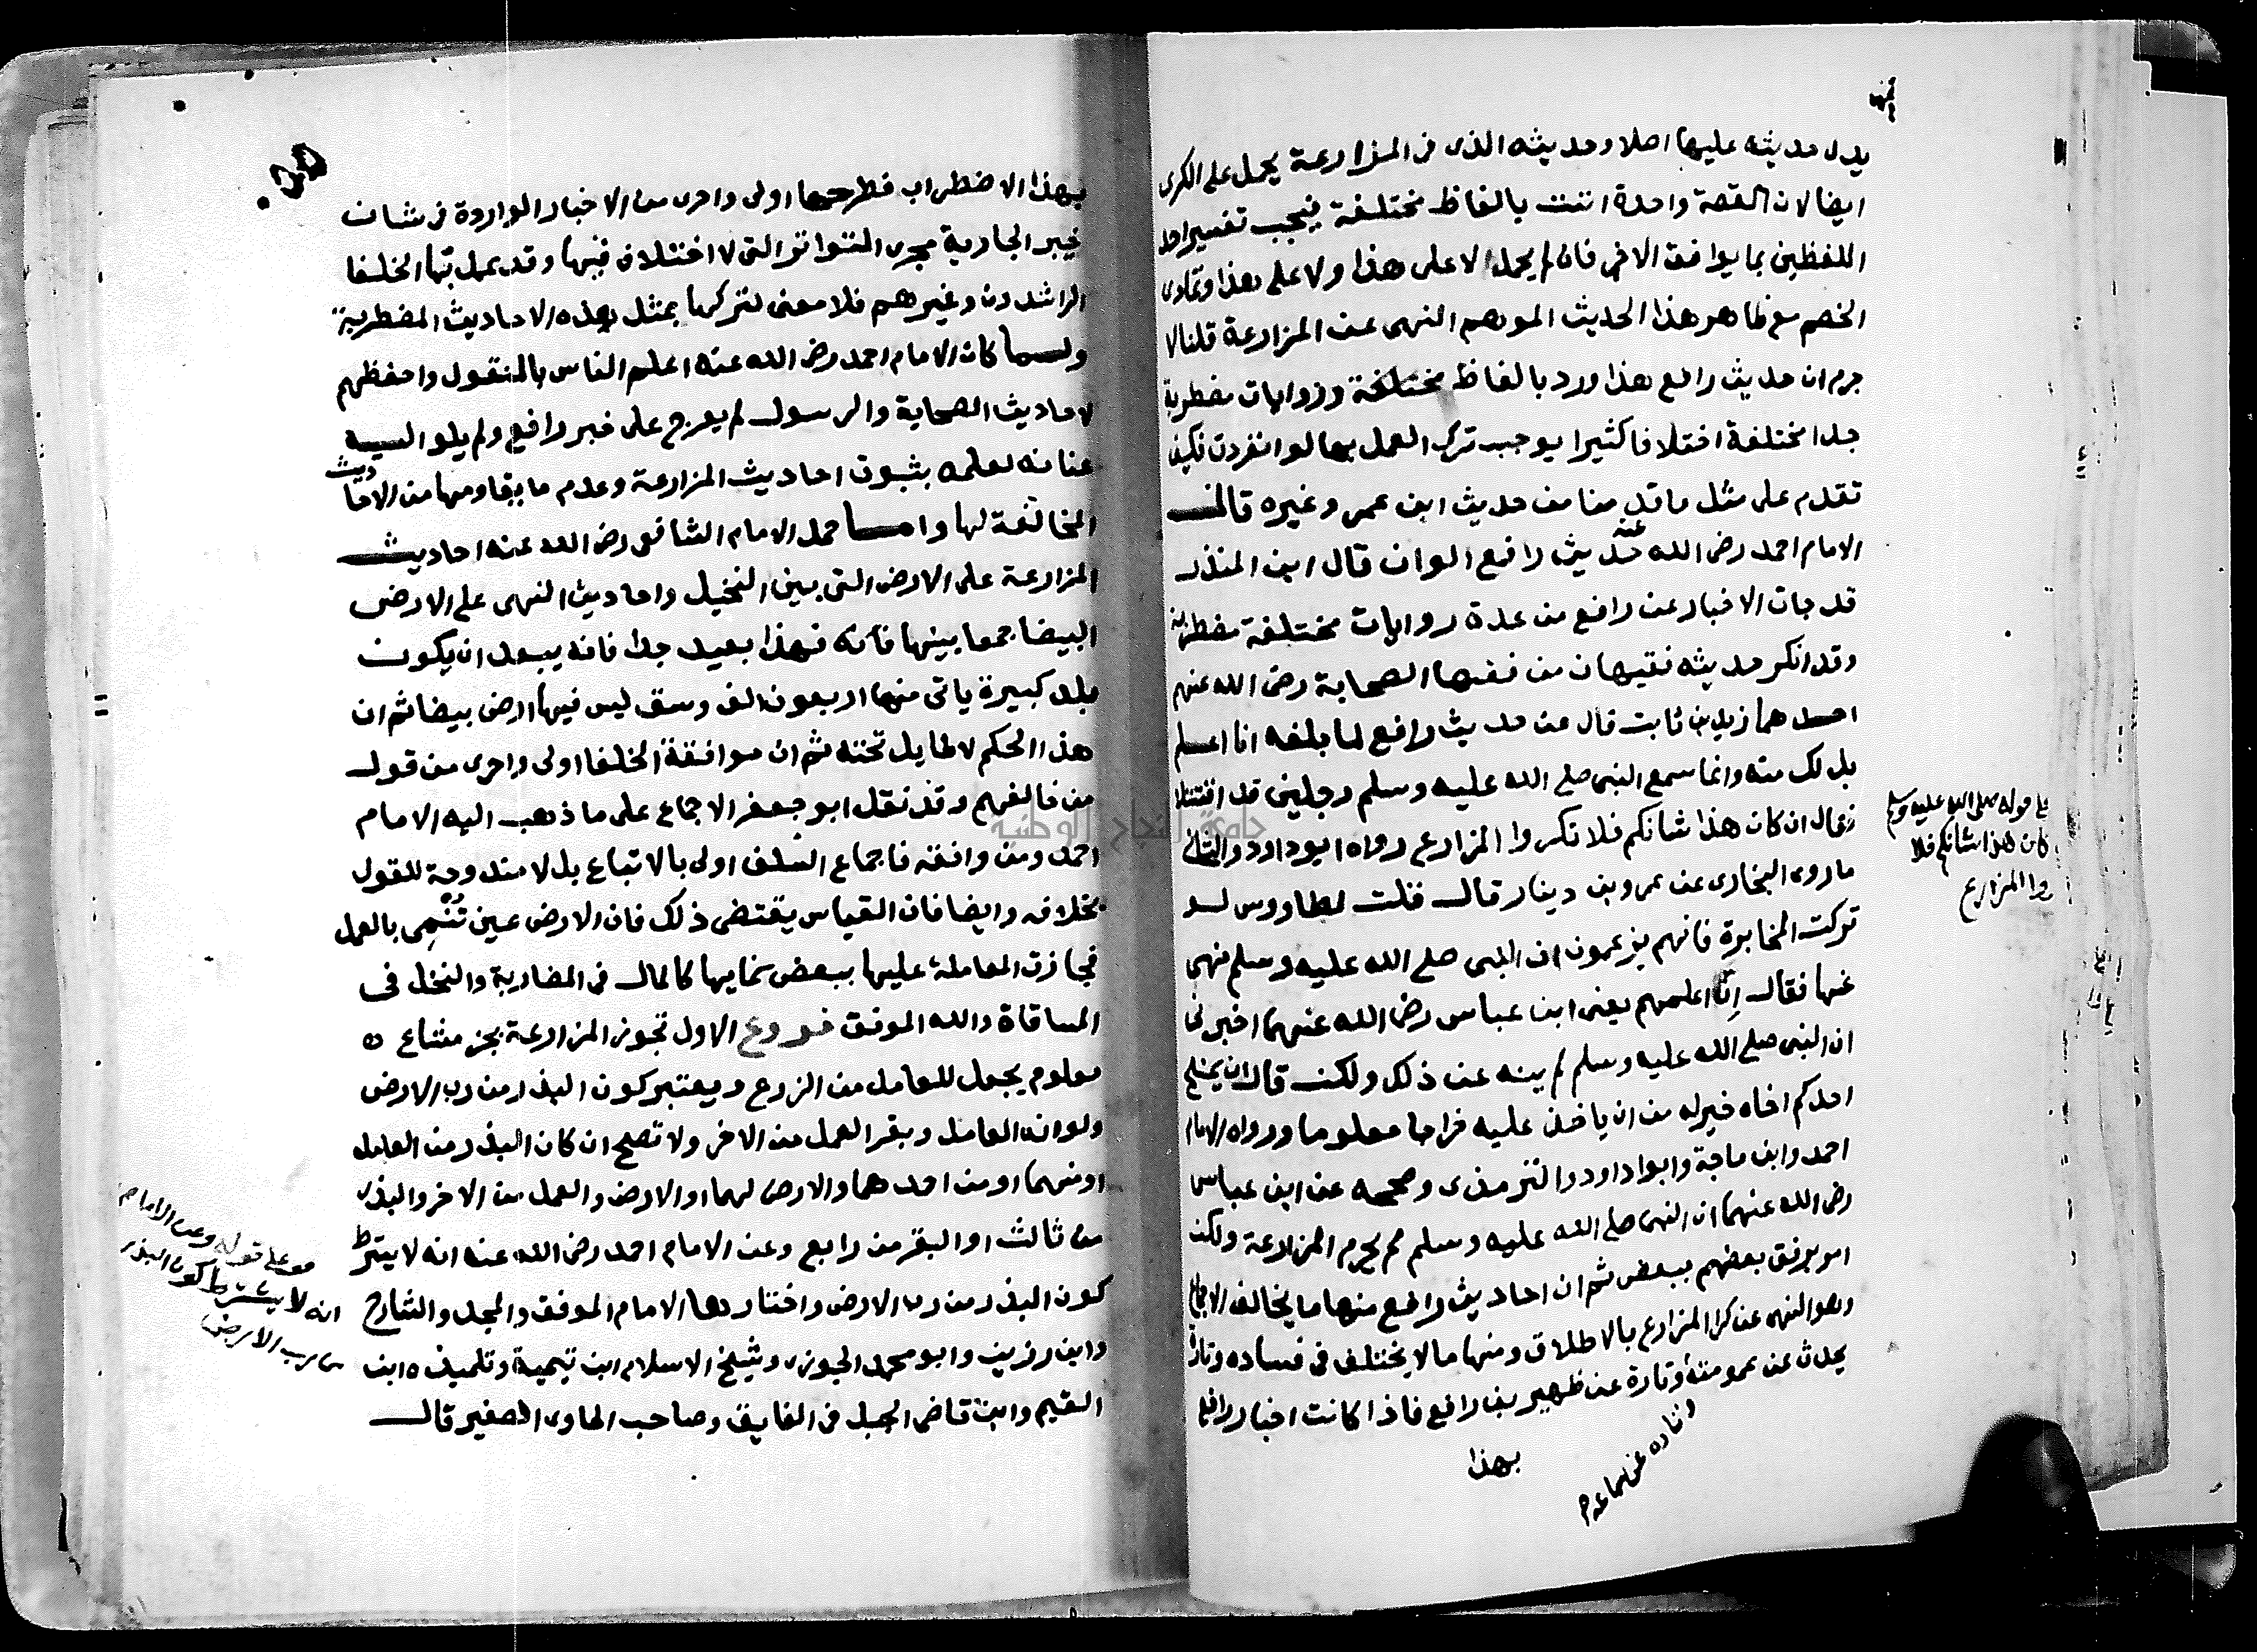 يدل حديثه عليها اصلا وحديثه الذى فى المزارعة يحمل على الكرى
ايضا لان القصة واحدة اتت بالفاظ مختلفة فيجب تفسير احد
اللفظين بما يوافق الاخر فان لم يحمل لا على هذا ولا على هذا وتمادى
الخصم مع ظاهر هذا الحديث الموهم النهى عن المزارعة قلنا لا
جرم ان حديث رافع هذا ورد بالفاظ مختلفة وروايات مضطربة
جدا مختلفة اختلافا كثيرا يوجب ترك العمل بها لو انفردت فكيف
تقدم على مثل ما قدمنا من حديث ابن عمر وغيره قال
الامام احمد رضى الله عنه حديث رافع الوان قال ابن المنذر
قد جات الاخبار عن رافع من عدة روايات مختلفة مضطربة
وقد انكر حديثه فقيهان من فقها الصحابة رضى الله عنهم
احدهما زيد بن ثابت قال عن حديث رافع لما بلغه انا اعلم
بذلك منه وانما سمع النبى صلى الله عليه وسلم رجلين قد اقتتلا
فقال ان كان هذا شانكم فلا تكروا المزارع رواه ابو داود والثانى
ما روى البخارى عن عمرو بن دينار قال قلت لطاووس لو
تركت المخابرة فانهم يزعمون ان النبى صلى الله عليه وسلم نهى
عنها فقال ان اعلمهم يعنى ابن عباس رضى الله عنهما اخبرنى
ان النبى صلى الله عليه وسلم لم ينه عن ذلك ولكن قال ان يمنح
احدكم اخاه خير له من ان ياخذ عليه خراجا معلوما ورواه الامام
احمد وابن ماجة وابوا داود والترمذى وصححه عن ابن عباس
رضى الله عنهما ان النبى صلى الله عليه وسلم لم يحرم المزارعة ولكن
امر يرفق بعضهم ببعض ثم ان احاديث رافع منها ما يخالف الاجماع
وهو النهى عن كرا المزارع بالاطلاق ومنها ما لا يختلف فى فساده وتارة
يحدث عن عمومته وتارة عن ظهير بن رافع فاذا كانت اخبار رافع
بهذا
وتارة عن سماعه
على قوله صلى الله عليه وسلم
كان هذا شانكم فلا
روا المزارع
بهذا الاضطراب فطرحها اولى واحرى من الاخبار الواردة فى شان
خيبر الجارية مجرى المتواتر التى لا اختلاف فيها وقد عمل بها الخلفا
الراشدون وغيرهم فلا معنى لتركها بمثل هذه الاحاديث المضطربة
ولما كان الامام احمد رضى الله عنه اعلم الناس بالمنقول واحفظهم
لاحاديث الصحابة والرسول لم يعرج على خبر رافع ولم يلو اليه
عنانه لعلمه بثبوت احاديث المزارعة وعدم ما يقاومها من الاحاديث
المخالفة لها واما حمل الامام الشافعى رضى الله عنه احاديث
المزارعة على الارض التى بين النخيل واحاديث النهى على الارض
البيضا جمعا بينها فانه فهذا بعيد جدا فانه يبعد ان يكون
بلد كبيرة ياتى منها اربعون الف وسق ليس فيها ارض بيضا ثم ان
هذا الحكم لا طايل تحته ثم ان موافقة الخلفا اولى واحرى من قول
من خالفهم وقد نقل ابو جعفر الاجماع على ما ذهب اليه الامام
احمد ومن وافقه فاجماع السلف اولى بالاتباع بل لا مندوحة للقول
بخلافه وايضا فان القياس يقتضى ذلك فان الارض عين تُنْمِى بالعمل
فجازت المعاملة عليها ببعض نمايها كالمال فى المضاربة والنخل فى
المساقاة والله الموفق فروع الاول تجوز المزارعة بجزء مشاع
معلوم يجعل للعامل من الزرع ويعتبر كون البذر من رب الارض
ولو انه العامل وبقر العمل من الاخر ولا تصح ان كان البذر من العامل
او منهما او من احدهما والارض لهما او الارض والعمل من الاخر والبذر
من ثالث او البقر من رابع وعن الامام احمد رضى الله عنه انه لا يشترط
كون البذر من رب الارض واختارها الامام الموفق والمجد والشارح
وابن رزين وابو محمد الجوزى وشيخ الاسلام ابن تيمية وتلميذه ابن
القيم وابن قاضى الجبل فى الفايق وصاحب الحاوى الصغير قال
على قوله وعن الامام
انه لا يشترط كون البذر
من رب الارض
جامعة النجاح الوطنية